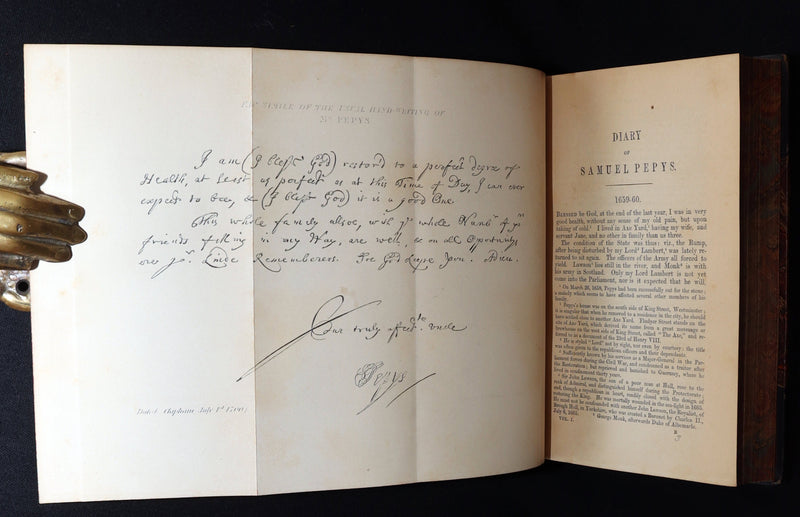 FAC SIMILE OF THE USUAL HAND-WRITING OF
Mr. PEPYS.
I am (I bless God) restor'd to a perfect degree of
Health, at least as perfect as at this Time of Day, I can ever
expect to bee, & (I bless God) it is a good One.
This whole family alsoe, with ye whole Numbr of yr
friends falling in my Way, are well, & on all Oportunitys
over yr. Kinde Remembrances. Soe God keepe you. Adieu.
Your truly affectte Uncle
S Pepys
Dated Clapham July 1st 1700
DIARY
OF
SAMUEL PEPYS.
1659-60.
BLESSED be God, at the end of the last year, I was in very
good health, without any sense of my old pain, but upon
taking of cold.¹ I lived in Axe Yard,² having my wife, and
servant Jane, and no other in family than us three.
The condition of the State was thus: viz, the Rump,
after being disturbed by my Lord³ Lambert,⁴ was lately re-
turned to sit again. The officers of the Army all forced to
yield. Lawson⁵ lies still in the river, and Monk⁶ is with
his army in Scotland. Only my Lord Lambert is not yet
come into the Parliament, nor is it expected that he will
¹ On March 26, 1658, Pepys had been successfully cut for the stone;
a malady which seems to have affected several other members of his
family.
² Pepys's house was on the south side of King Street, Westminster;
it is singular that when he removed to a residence in the city, he should
have settled close to another Axe Yard. Fludyer Street stands on the
site of Axe Yard, which derived its name from a great messuage or
brewhouse on the west side of King Street, called "The Axe," and re-
ferred to in a document of the 23rd of Henry VIII.
³ He is styled "Lord" not by right, nor even by courtesy: the title
was often given to the republican officers and their dependants.
⁴ Sufficiently known by his services as a Major-General in the Par-
liament forces during the Civil War, and condemned as a traitor after
the Restoration; but reprieved and banished to Guernsey, where he
lived in confinement thirty years.
⁵ Sir John Lawson, the son of a poor man at Hull, rose to the
rank of Admiral, and distinguished himself during the Protectorate;
and, though a republican in heart, readily closed with the design of
restoring the King. He was mortally wounded in the sea-fight in 1665.
He must not be confounded with another John Lawson, the Royalist, of
Brough Hall, in Yorkshire, who was created a Baronet by Charles II.,
July 6, 1665.
⁶ George Monk, afterwards Duke of Albemarle.
VOL. I.
B